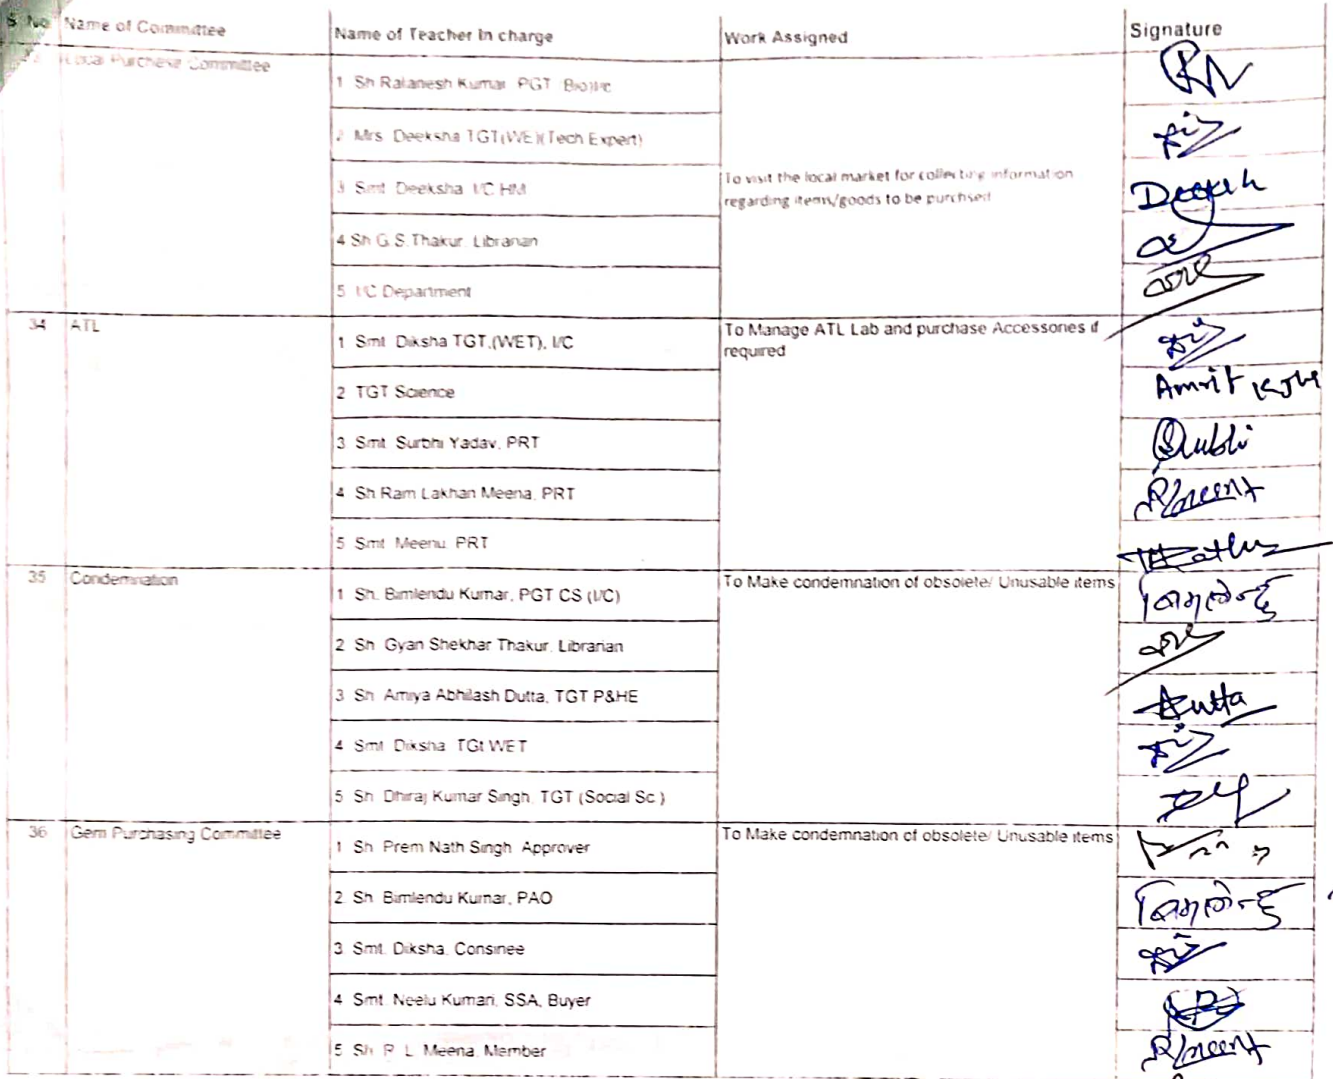 S No Name of Committee Name of Teacher In charge Work Assigned Signature
Local Purchese Committee
1 Sh Ralanesh Kumar PGT Bio)I/c
2 Mrs. Deeksha TGT(WE)(Tech Expert)
3 Smt Deeksha I/C HM
To visit the local market for collecting information
regarding items/goods to be purchsed
Deeksh
4 Sh G.S.Thakur, Librarian
5 I/C Department
34 ATL
1 Smt Diksha TGT,(WET), I/C
To Manage ATL Lab and purchase Accessories if
required
2 TGT Science
Amrit
3 Smt Surbhi Yadav, PRT
4 Sh Ram Lakhan Meena, PRT
5 Smt Meenu PRT
35 Condemnation
1 Sh. Bimlendu Kumar, PGT CS (I/C)
To Make condemnation of obsolete/ Unusable items
बिमलेन्दु
2 Sh Gyan Shekhar Thakur, Librarian
3 Sh Amiya Abhilash Dutta, TGT P&HE
Dutta
4 Smt Diksha TGt WET
5 Sh Dhiraj Kumar Singh, TGT (Social Sc.)
36 Gem Purchasing Committee
1 Sh Prem Nath Singh Approver
To Make condemnation of obsolete/ Unusable items
2. Sh Bimlendu Kumar, PAO
बिमलेन्दु
3 Smt. Diksha, Consinee
4 Smt. Neelu Kumari, SSA, Buyer
5 Sh R. L. Meena, Member